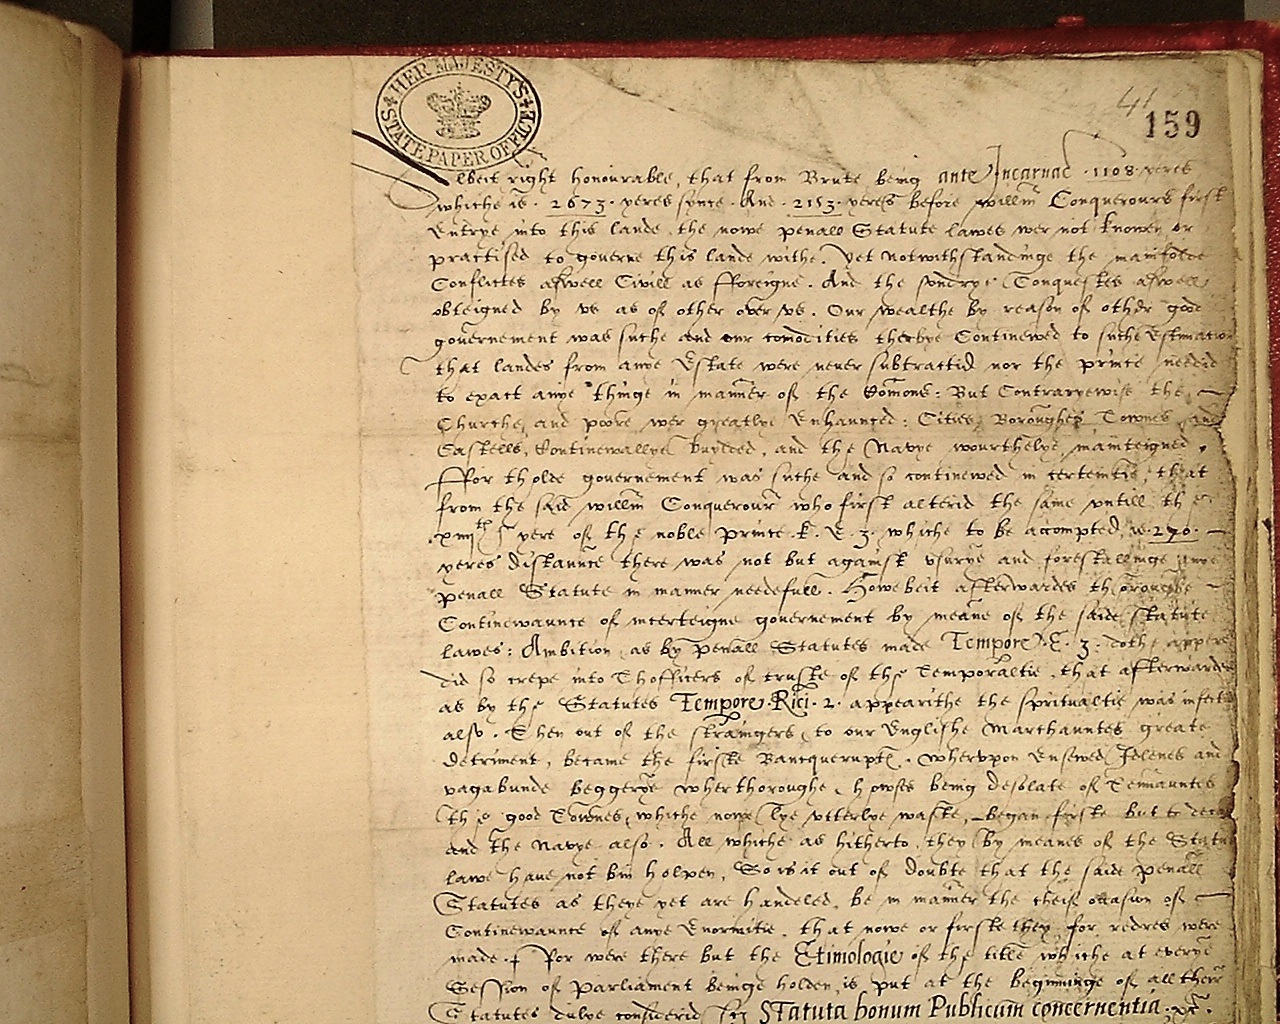 HER MAJESTY'S STATE PAPER OFFICE
41
159
Albeit right honourable, that from Brute being ante Incarnac 1108 yeres
whiche is 2673 yeres synce. And 2153 yeres before willm Conquerours first
Entrye into this lande, the nowe penall Statute lawes wer not knowen or
practised to governe this lande withe. Yet notwithstandinge the manifolde
Conflictes aswell Civill as fforeigne. And the sondrye Conquestes aswell
obteigned by us as of other over us. Our wealthe by reason of other good
governement was suche and our comodities therbye Continewed to suche Estimation
that landes from anye Estate were never subtractid nor the prince needed
to exact anye thinge in manner of the Comons: But Contraryewise the
Churche, and poore wer greatlye Enhaunced: Cities, Boroughes Townes and
Castells, Continewallye buylded, and the Navye wourthelye mainteigned.
ffor tholde governement was suche and so continewed in certeintie, that
from the said willm Conquerour who first alterid the same untill the
yere of the noble prince K. E. 3. whiche to be accompted, is 270.
yeres distaunce there was not but against usurye and forestallinge anye
penall Statute in manner needefull. Howebeit afterwardes thoroughe
Continewaunce of incerteigne governement by meane of the saide statute
lawes: Ambition, as by penall Statutes made Tempore E. 3. dothe appere
did so crepe into Thofficers of truste of the Temporaltie, that afterwardes
as by the Statutes Tempore Rici 2. appearithe the spritualtie was infected
also. Then out of the straingers, to our Englishe Marchauntes greate
detriment, became the firste Bancquerupte. Wherupon Ensewed Idelenes and
vagabunde beggerye wherthoroughe, howses being desolate of Tennauntes
the good Townes, whiche nowe lye utterlye waste, began firste but to decay
and the Navye also. All whiche as hitherto, they by meanes of the Statute
lawe have not bin holpen, So is it out of doubte that the saide penall
Statutes as theye yet are handeled, be in manner the cheif occasion of
Continewaunce of anye Enormitie, that nowe or firste they for redres were
made. For were there but the Etimologie of the title whiche at everye
Session of parliament beinge holden, is put at the beginninge of all their
Statutes dulye considerid Statuta bonum Publicum concernentia